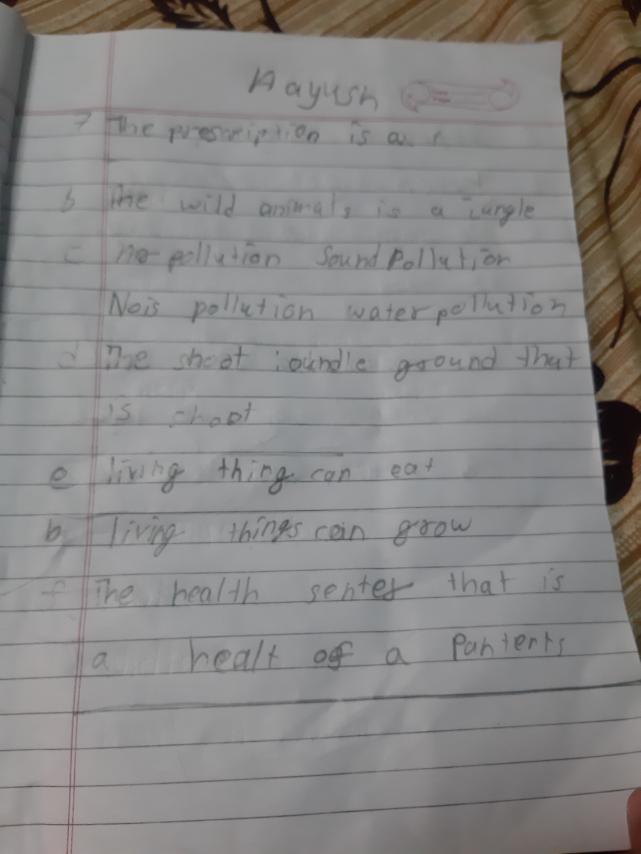 Aayush
7 The prescription is a
b The wild animals is a jungle
c no pollution Sound Pollution
Nois pollution water pollution
d The shoot oundle ground that
is shoot
e living thing can eat
b living things can grow
f The health senter that is
a healt of a Pantents